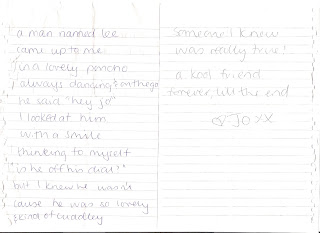 a man named lee
came up to me
in a lovely poncho
always dancing & on the go
he said "hey jo"
I looked at him
with a smile
thinking to myself
"is he off his dial?"
but I knew he wasn't
cause he was so lovely
& kind of cuddley
someone I knew
was really true!
a kool friend
forever, till the end
Jo xx